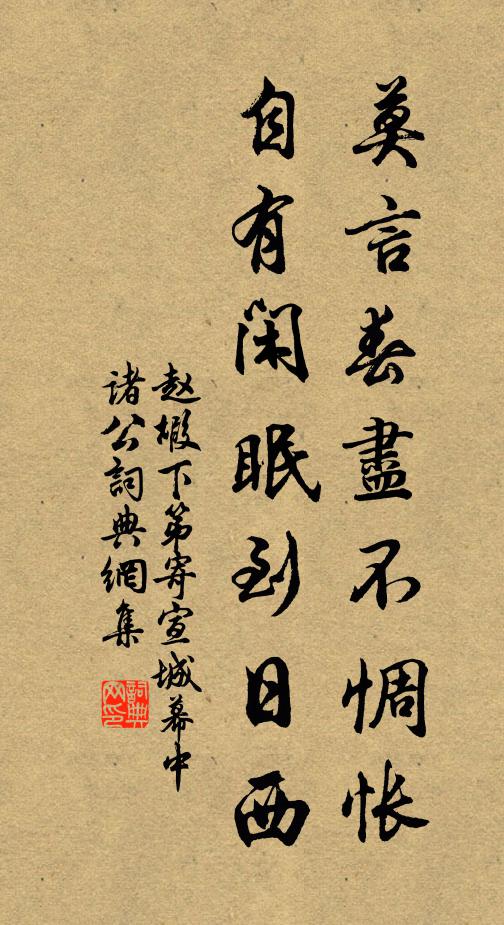 莫言春盡不惆怅
自有闲眠到日西
赵嘏下第寄宣城幕中
诸公詞典網集
詞典
网印